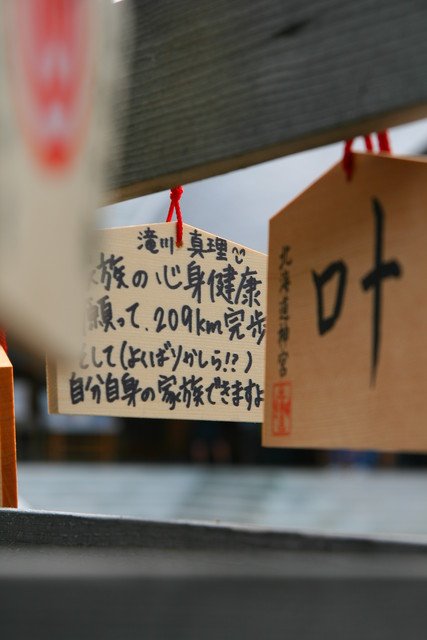 滝川 真理
族の心身健康
願って、209km完歩
して(よくばりかしら!?)
自分自身の家族できますよ
叶
北海道神宮